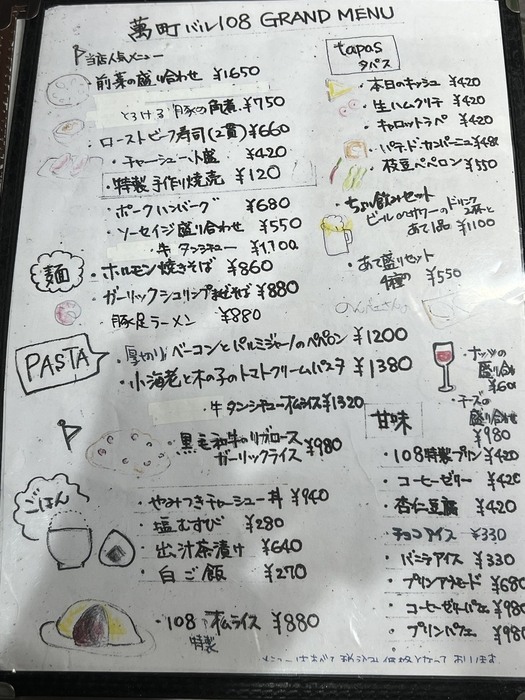 萬町バル108 GRAND MENU
当店人気メニュー
・前菜の盛り合わせ ¥1650
とろける豚の角煮 ¥750
ローストビーフ寿司(2貫) ¥660
・チャーシュー小盛 ¥420
・特製手作り焼売 ¥120
ポークハンバーグ ¥680
・ソーセイジ盛り合わせ ¥550
・牛タンシチュー ¥1,100
麺
・ホルモン焼きそば ¥860
・ガーリックシュリンプまぜそば ¥880
・豚足ラーメン ¥880
PASTA
・厚切りベーコンとパルミジャーノのペペロン ¥1200
・小海老と木の子のトマトクリームパスタ ¥1380
・牛タンシチューオムライス ¥1320
・黒毛和牛のリブロース
ガーリックライス ¥980
ごはん
・やみつきチャーシュー丼 ¥940
・塩むすび ¥280
・出汁茶漬け ¥640
・白ご飯 ¥270
・108オムライス ¥880
特製
tapas
タパス
・本日のキッシュ ¥420
・生ハムクリチ ¥420
・キャロットラペ ¥420
・パテドカンパーニュ ¥480
・枝豆ペペロン ¥550
・ちょい飲みセット
ビールorサワーのドリンク2杯と
あて1品 ¥1100
・あて盛りセット
4種 ¥550
・ナッツの
盛り合わせ
・チーズの
盛り合わせ
¥980
甘味
・108特製プリン ¥420
・コーヒーゼリー ¥420
・杏仁豆腐 ¥420
・チョコアイス ¥330
・バニラアイス ¥330
・プリンアラモード ¥680
・コーヒーゼリーパフェ ¥980
・プリンパフェ ¥980
メニューはすべて税込み価格となっております